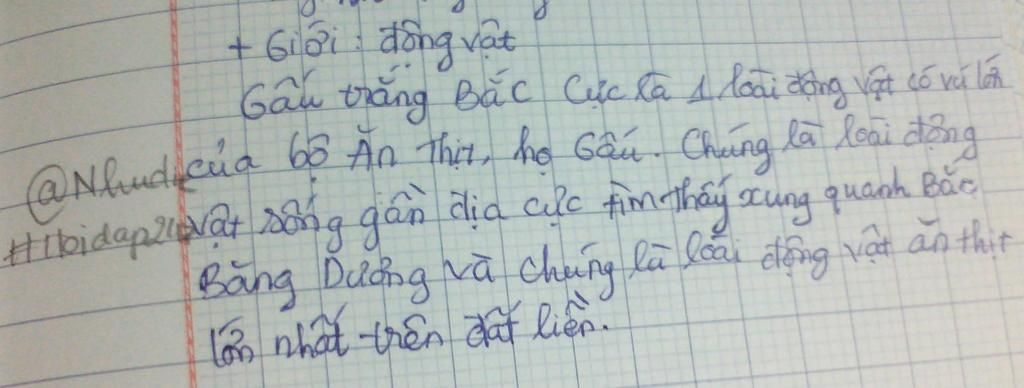 + Giới: động vật
Gấu trắng Bắc Cực là 1 loài động vật có vú lớn
của bộ Ăn Thịt, họ Gấu. Chúng là loài động
@Nhudi
vật sống gần địa cực tìm thấy xung quanh Bắc
#Hoidap24
Băng Dương và chúng là loài động vật ăn thịt
lớn nhất trên đất liền.